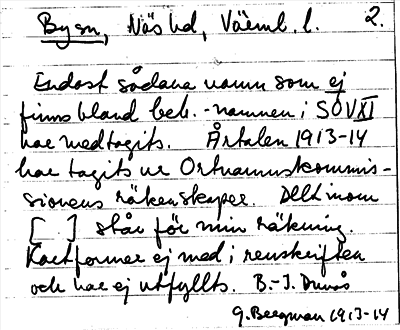 By sn, Näs hd, Värml. l. 2.
Endast sådana namn som ej
finns bland beb.-namnen i SOV XI
har medtagits. Årtalen 1913-14
har tagits ur Ortnamnskommis-
sionens räkenskaper. Det inom
[ ] står för min räkning.
Kartformer ej med i renskriften
och har ej utfyllts. B.-J.
G. Bergman 1913-14